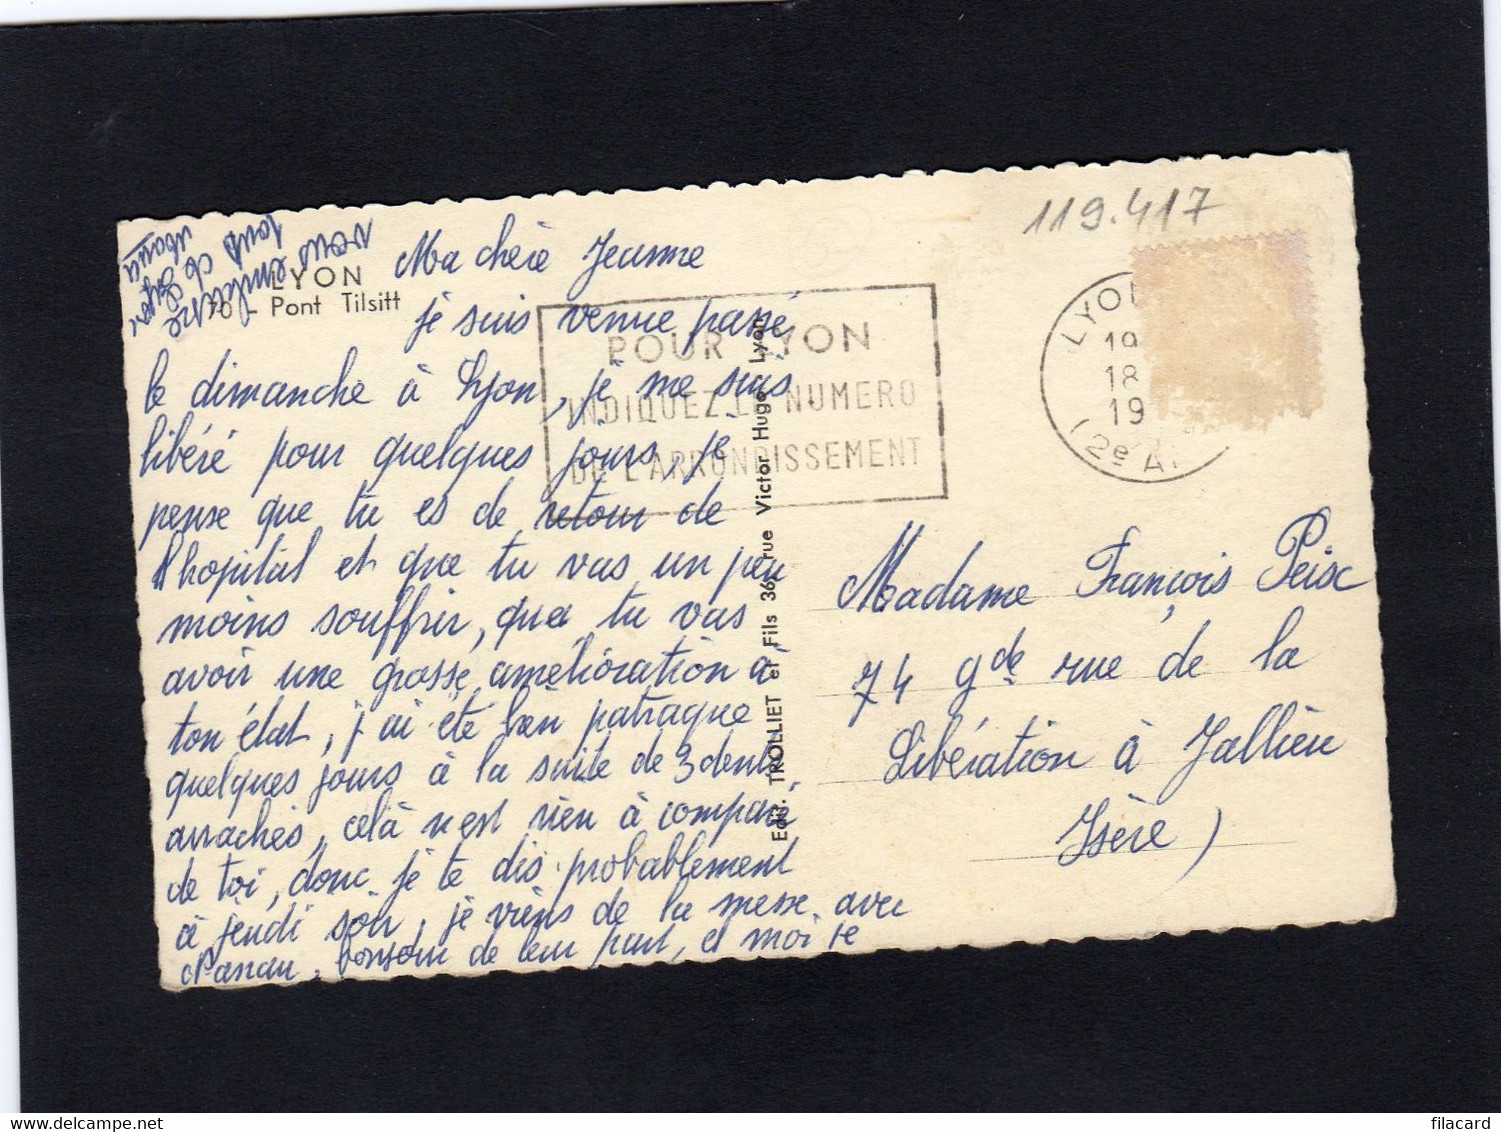 119.417
LYON
70 - Pont Tilsitt
Ma chère Jeanne
je suis venue passé
le dimanche à Lyon, je me suis
libéré pour quelques jours, je
pense que tu es de retour de
l'hopital et que tu vas un peu
moins souffrir, que tu vas
avoir une grosse amélioration à
ton état, j'ai été bien patraque
quelques jours à la suite de 3 dents
arrachés, celà n'est rien à comparé
de toi, donc je te dis probablement
à jeudi soir, je viens de la messe avec
bonsoir de leur part, et moi je
vous embrasse
tous de Lyon
POUR LYON
INDIQUEZ LE NUMERO
DE L'ARRONDISSEMENT
Edit. TROLLIET et Fils 36, rue Victor Hugo Lyon
LYON
19
18
19
(2e AR
Madame François Peisc
74 gde rue de la
Libération à Jallieu
Isère)
filacard.
www.delcampe.net